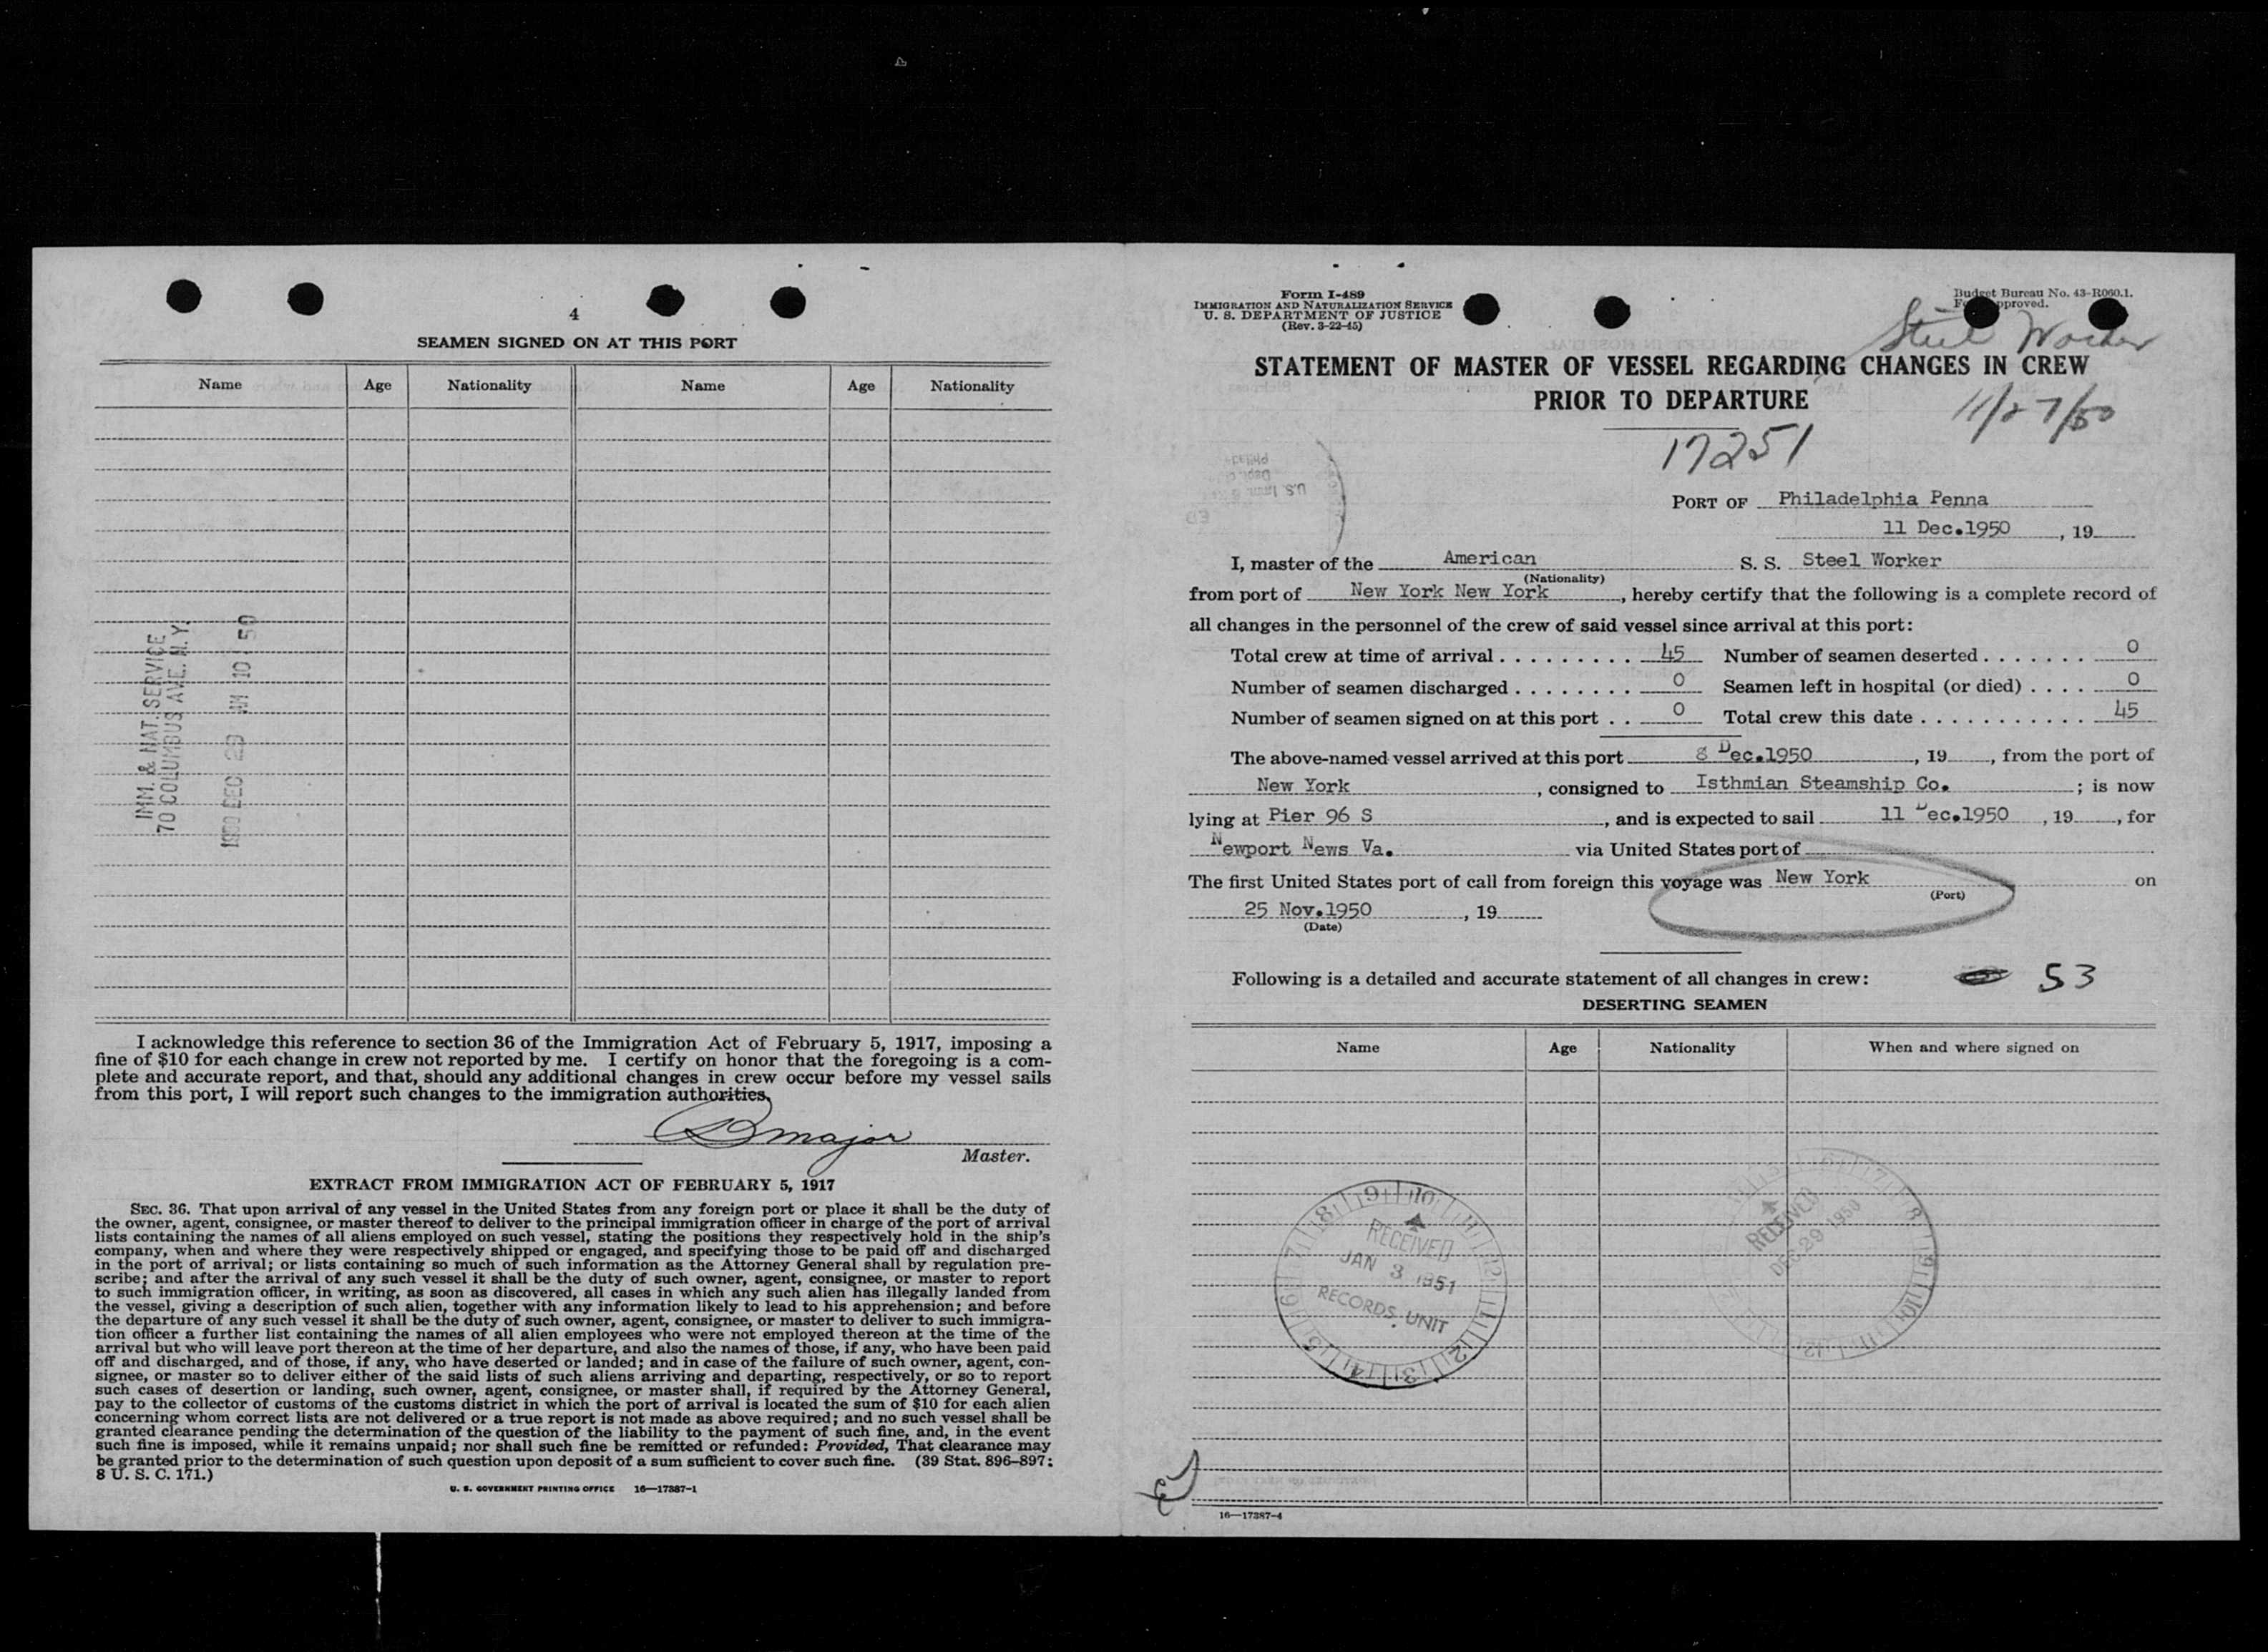 4
SEAMEN SIGNED ON AT THIS PORT
Name Age Nationality Name Age Nationality
IMM. & NAT. SERVICE
70 COLUMBUS AVE. N.Y.
1950 DEC 29 AM 10 50
I acknowledge this reference to section 36 of the Immigration Act of February 5, 1917, imposing a
fine of $10 for each change in crew not reported by me. I certify on honor that the foregoing is a com-
plete and accurate report, and that, should any additional changes in crew occur before my vessel sails
from this port, I will report such changes to the immigration authorities.
Major
Master.
EXTRACT FROM IMMIGRATION ACT OF FEBRUARY 5, 1917
SEC. 36. That upon arrival of any vessel in the United States from any foreign port or place it shall be the duty of
the owner, agent, consignee, or master thereof to deliver to the principal immigration officer in charge of the port of arrival
lists containing the names of all aliens employed on such vessel, stating the positions they respectively hold in the ship's
company, when and where they were respectively shipped or engaged, and specifying those to be paid off and discharged
in the port of arrival; or lists containing so much of such information as the Attorney General shall by regulation pre-
scribe; and after the arrival of any such vessel it shall be the duty of such owner, agent, consignee, or master to report
to such immigration officer, in writing, as soon as discovered, all cases in which any such alien has illegally landed from
the vessel, giving a description of such alien, together with any information likely to lead to his apprehension; and before
the departure of any such vessel it shall be the duty of such owner, agent, consignee, or master to deliver to such immigra-
tion officer a further list containing the names of all alien employees who were not employed thereon at the time of the
arrival but who will leave port thereon at the time of her departure, and also the names of those, if any, who have been paid
off and discharged, and of those, if any, who have deserted or landed; and in case of the failure of such owner, agent, con-
signee, or master so to deliver either of the said lists of such aliens arriving and departing, respectively, or so to report
such cases of desertion or landing, such owner, agent, consignee, or master shall, if required by the Attorney General,
pay to the collector of customs of the customs district in which the port of arrival is located the sum of $10 for each alien
concerning whom correct lists are not delivered or a true report is not made as above required; and no such vessel shall be
granted clearance pending the determination of the question of the liability to the payment of such fine, and, in the event
such fine is imposed, while it remains unpaid; nor shall such fine be remitted or refunded: Provided, That clearance may
be granted prior to the determination of such question upon deposit of a sum sufficient to cover such fine. (39 Stat. 896–897;
8 U. S. C. 171.)
U. S. GOVERNMENT PRINTING OFFICE 16—17387-1
Form I-489
IMMIGRATION AND NATURALIZATION SERVICE
U. S. DEPARTMENT OF JUSTICE
(Rev. 3-22-45)
Budget Bureau No. 43-R060.1.
approved.
Steel Worker
STATEMENT OF MASTER OF VESSEL REGARDING CHANGES IN CREW
PRIOR TO DEPARTURE
11/27/50
17251
PORT OF Philadelphia Penna
11 Dec.1950, 19
I, master of the American S. S. Steel Worker
(Nationality)
from port of New York New York, hereby certify that the following is a complete record of
all changes in the personnel of the crew of said vessel since arrival at this port:
Total crew at time of arrival . . . . . . . . . 45 Number of seamen deserted . . . . . . . 0
Number of seamen discharged . . . . . . . . 0 Seamen left in hospital (or died) . . . . 0
Number of seamen signed on at this port . . 0 Total crew this date . . . . . . . . . . . 45
The above-named vessel arrived at this port 8 Dec.1950, 19, from the port of
New York, consigned to Isthmian Steamship Co. ; is now
lying at Pier 96 S, and is expected to sail 11 Dec.1950, 19, for
Newport News Va. via United States port of
The first United States port of call from foreign this voyage was New York on
(Port)
25 Nov.1950, 19
(Date)
Following is a detailed and accurate statement of all changes in crew: 53
DESERTING SEAMEN
Name Age Nationality When and where signed on
RECEIVED
JAN 3 1951
RECORDS UNIT
RECEIVED
DEC 29 1950
16—17387-4